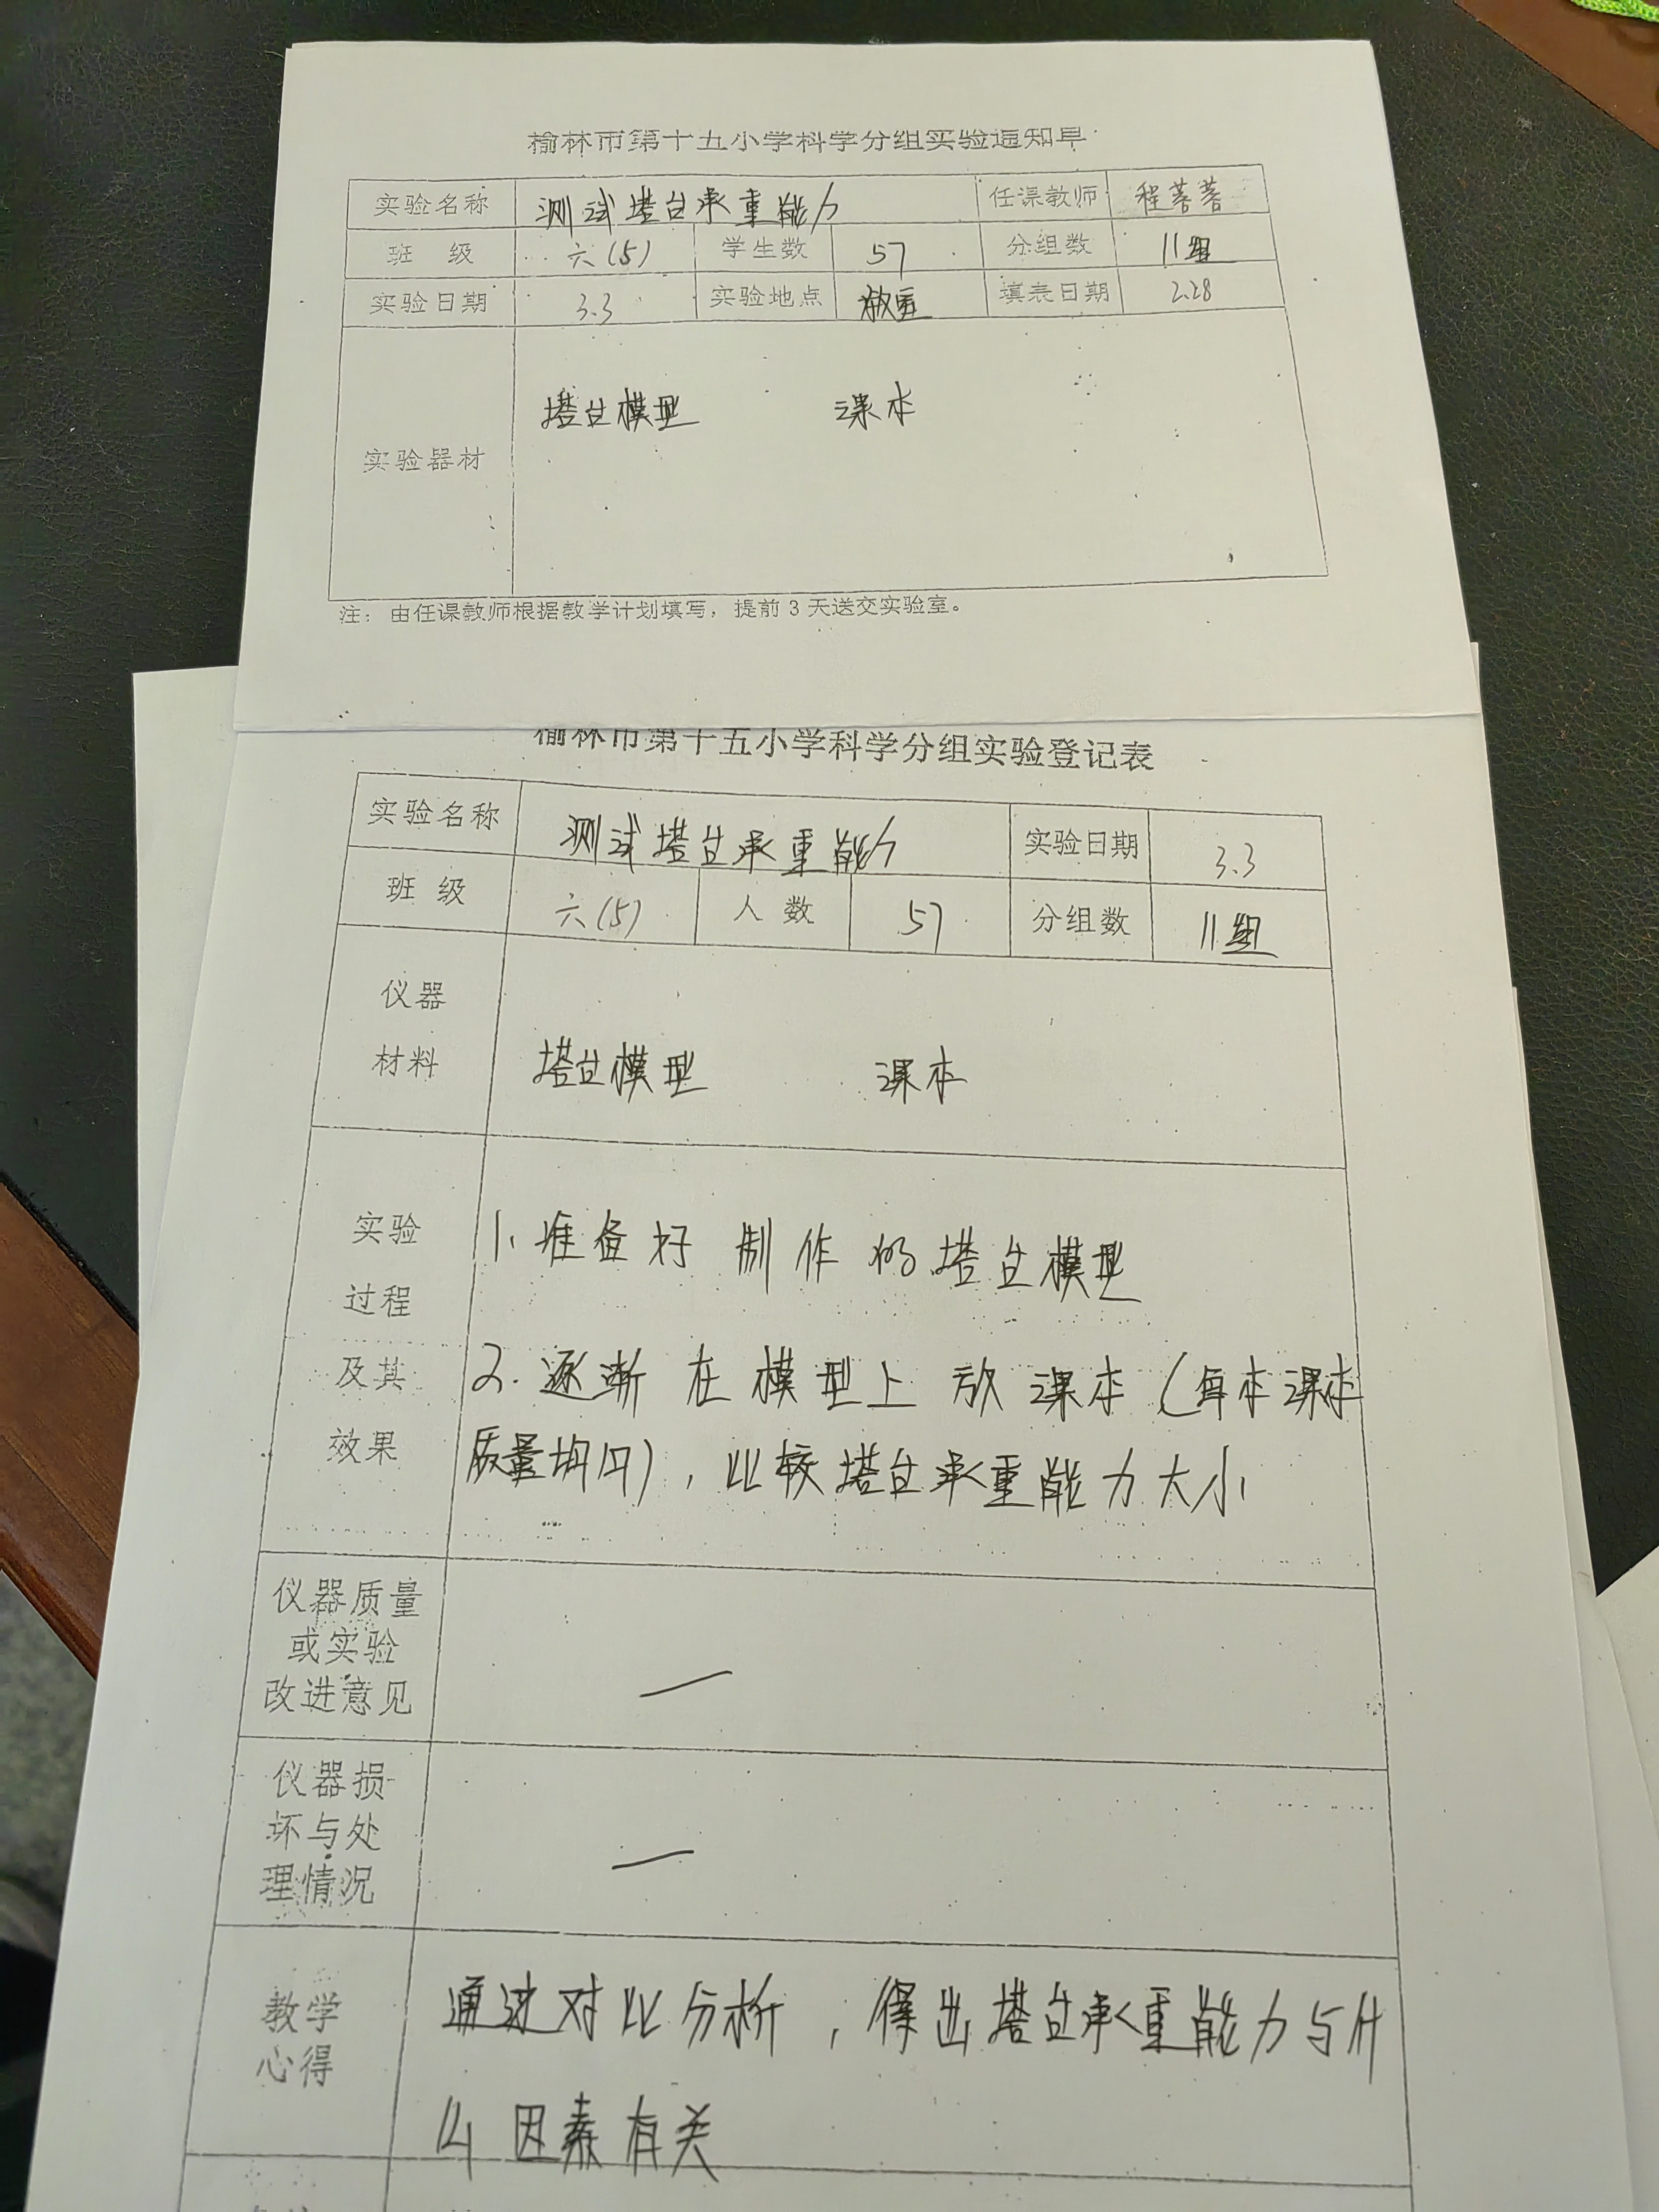 榆林市第十五小学科学分组实验通知单
实验名称 测试塔台承重能力 任课教师 程菩菩
班 级 六(5) 学生数 57 分组数 11组
实验日期 3.3 实验地点 教室 填表日期 2.28
实验器材 塔台模型 课本
注：由任课教师根据教学计划填写，提前3天送交实验室。
榆林市第十五小学科学分组实验登记表
实验名称 测试塔台承重能力 实验日期 3.3
班 级 六(5) 人 数 57 分组数 11组
仪器
材料 塔台模型 课本
实验 1、准备好制作的塔台模型
过程
及其 2.逐渐在模型上放课本(每本课本
效果 质量均同)，比较塔台承重能力大小
仪器质量
或实验
改进意见 —
仪器损
坏与处 —
理情况
教学 通过对比分析，得出塔台承重能力与什
心得
么因素有关